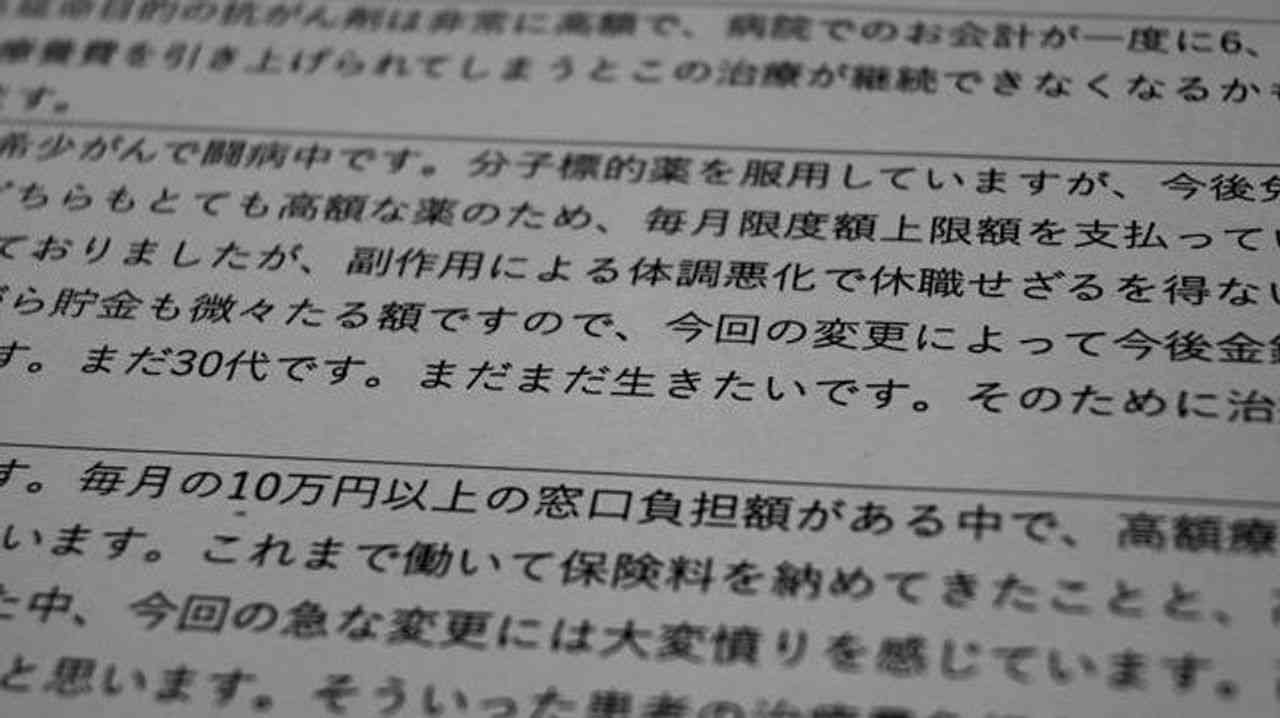 延命目的の抗がん剤は非常に高額で、病院でのお会計が一度に6、
療養費を引き上げられてしまうとこの治療が継続できなくなるかも
ます。
希少がんで闘病中です。分子標的薬を服用していますが、今後免
どちらもとても高額な薬のため、毎月限度額上限額を支払ってい
ておりましたが、副作用による体調悪化で休職せざるを得ない
がら貯金も微々たる額ですので、今回の変更によって今後金銭
す。まだ30代です。まだまだ生きたいです。そのために治
す。毎月の10万円以上の窓口負担額がある中で、高額療
います。これまで働いて保険料を納めてきたことと、
た中、今回の急な変更には大変憤りを感じています。
と思います。そういった患者の治療費